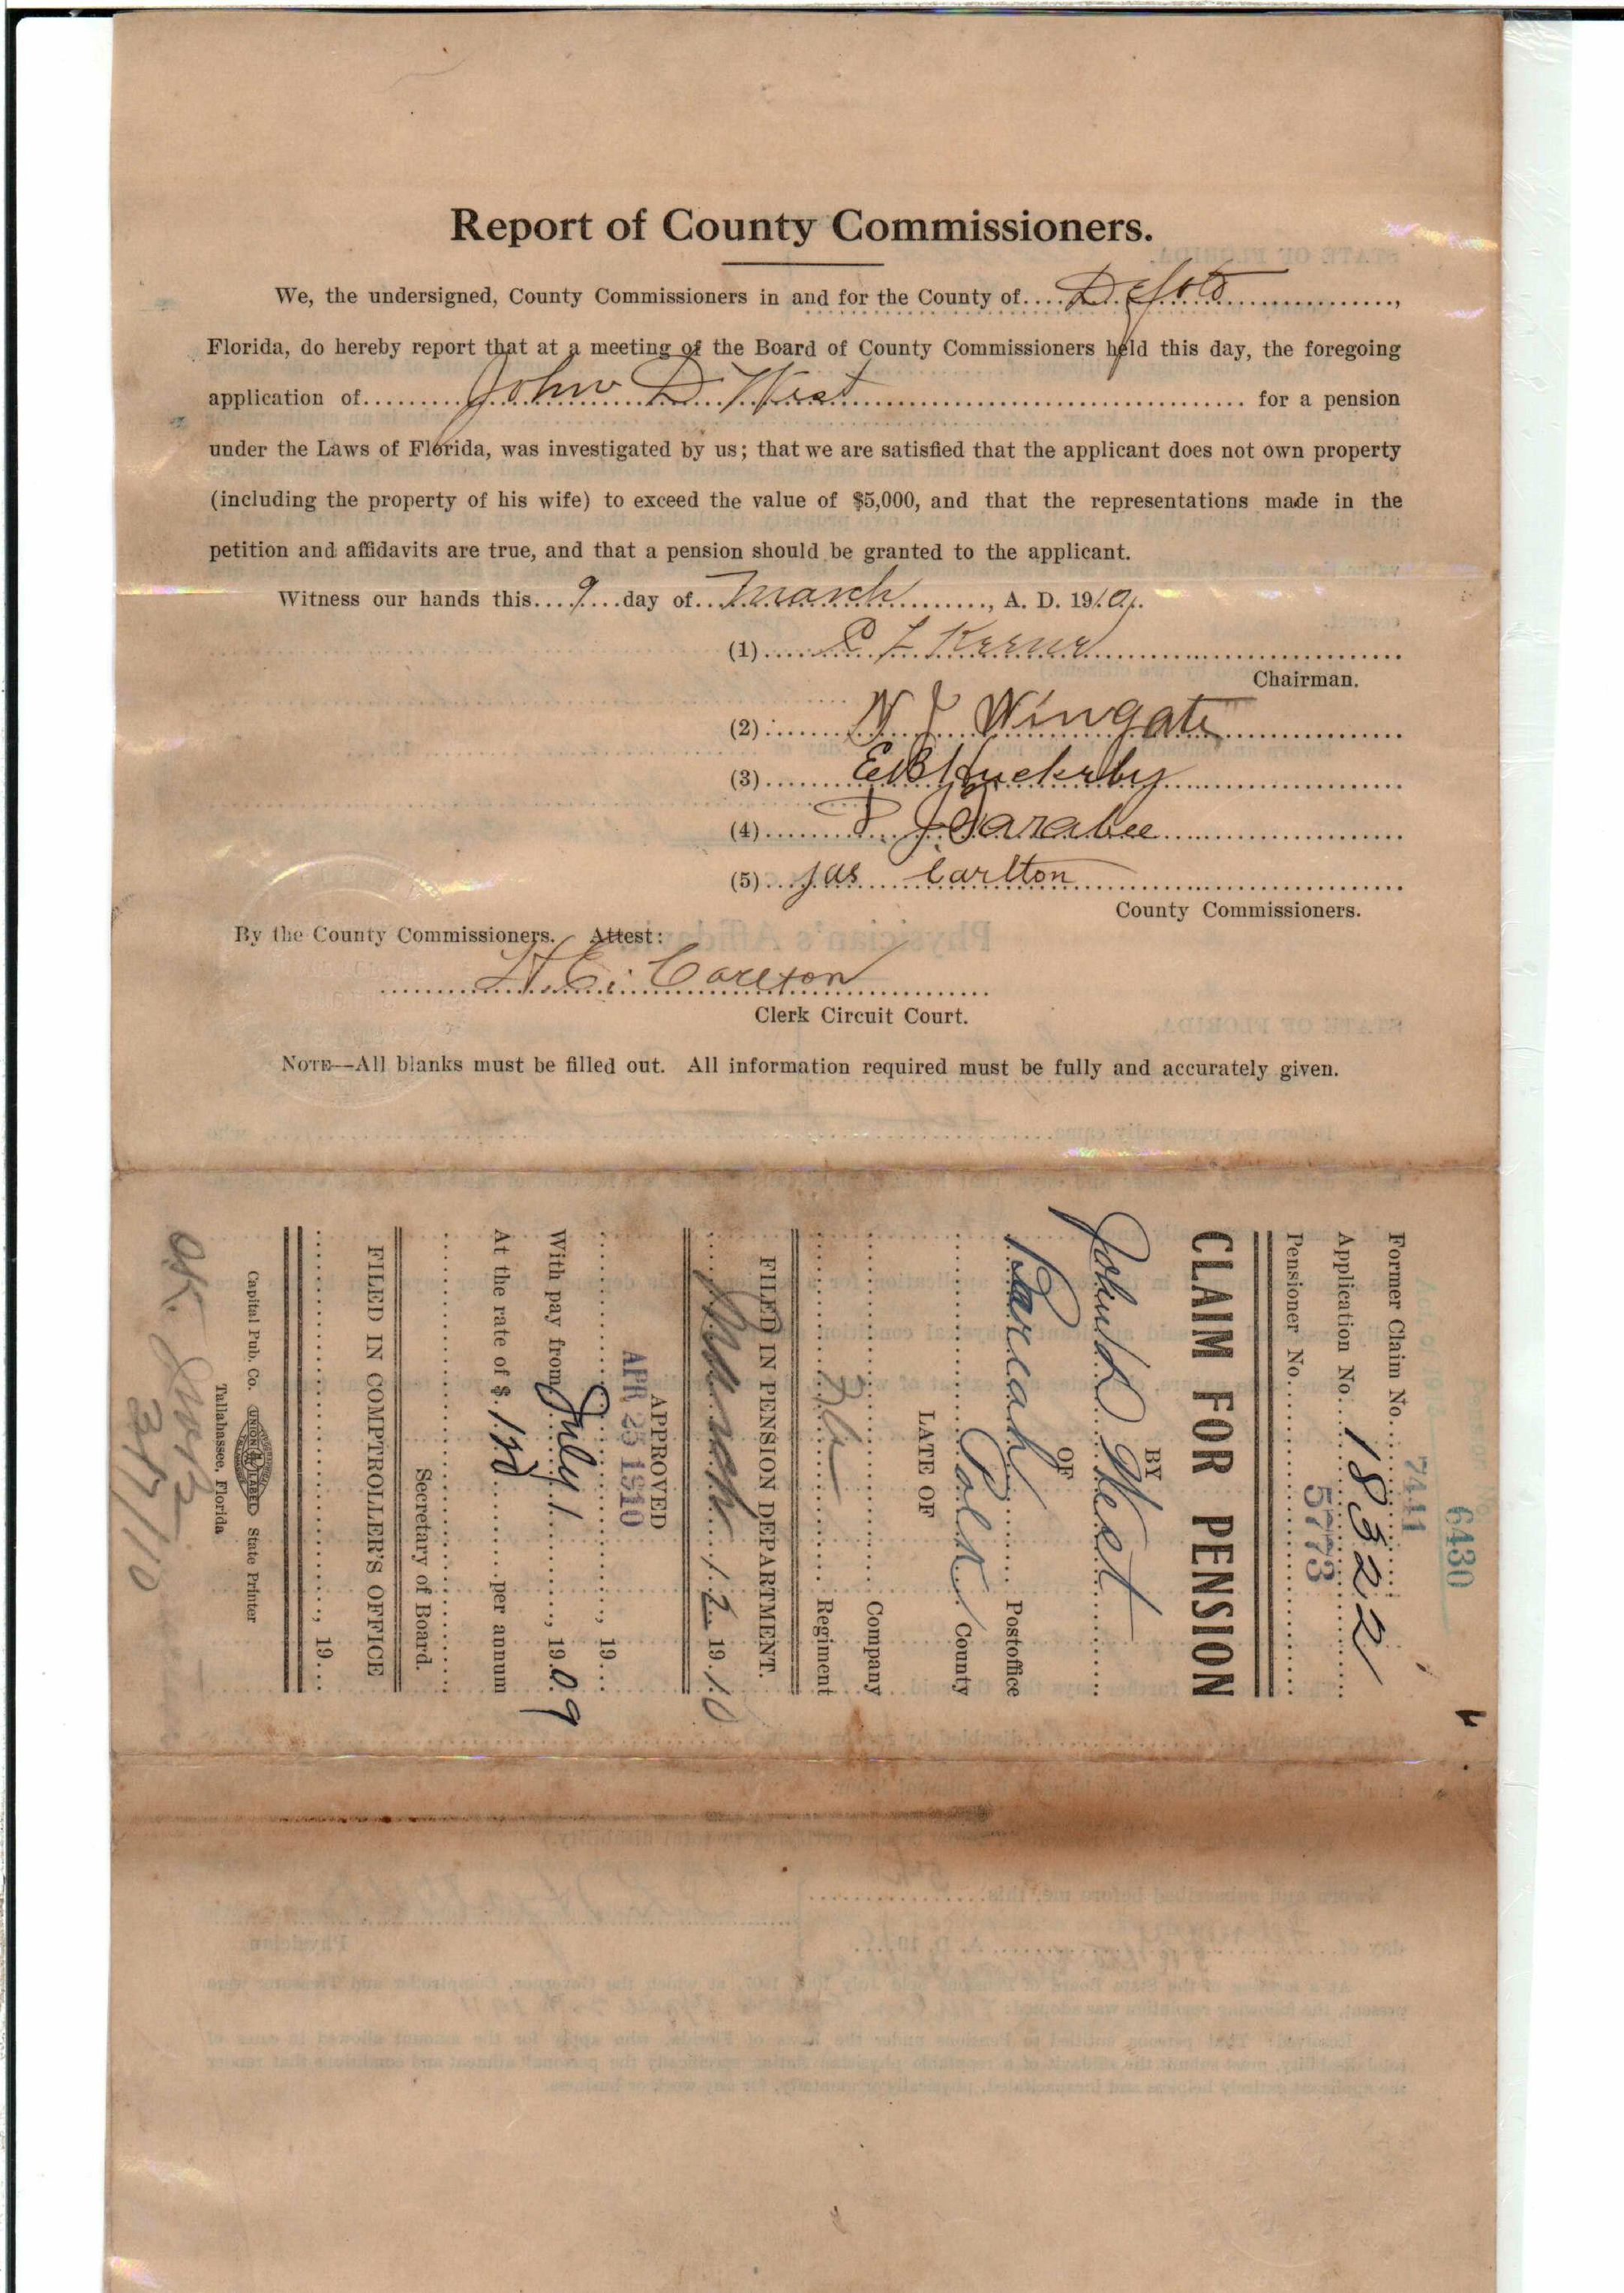 Report of County Commissioners.
We, the undersigned, County Commissioners in and for the County of.... DeSoto ..............,
Florida, do hereby report that at a meeting of the Board of County Commissioners held this day, the foregoing
application of......... John D West .................................... for a pension
under the Laws of Florida, was investigated by us; that we are satisfied that the applicant does not own property
(including the property of his wife) to exceed the value of $5,000, and that the representations made in the
petition and affidavits are true, and that a pension should be granted to the applicant.
Witness our hands this.... 9 ....day of... March ..........., A. D. 1910.
(1)
Chairman.
(2) N J Wingate
(3) E B Huckerby
(4)
(5) Jas Carlton
County Commissioners.
By the County Commissioners. Attest:
H. E. Carlton
Clerk Circuit Court.
NOTE—All blanks must be filled out. All information required must be fully and accurately given.
6430
7411
Former Claim No.
Application No. 18322
5773
Pensioner No.
CLAIM FOR PENSION
BY
John D West
OF
Postoffice
Polk County
LATE OF
Company
Regiment
FILED IN PENSION DEPARTMENT.
March 12 1910
APPROVED
APR 25 1910
19
With pay from July 1, 1909
At the rate of $ 120 per annum
Secretary of Board.
FILED IN COMPTROLLER'S OFFICE
, 19
Capital Pub. Co. State Printer
Tallahassee, Florida
O.K.
3/17/10